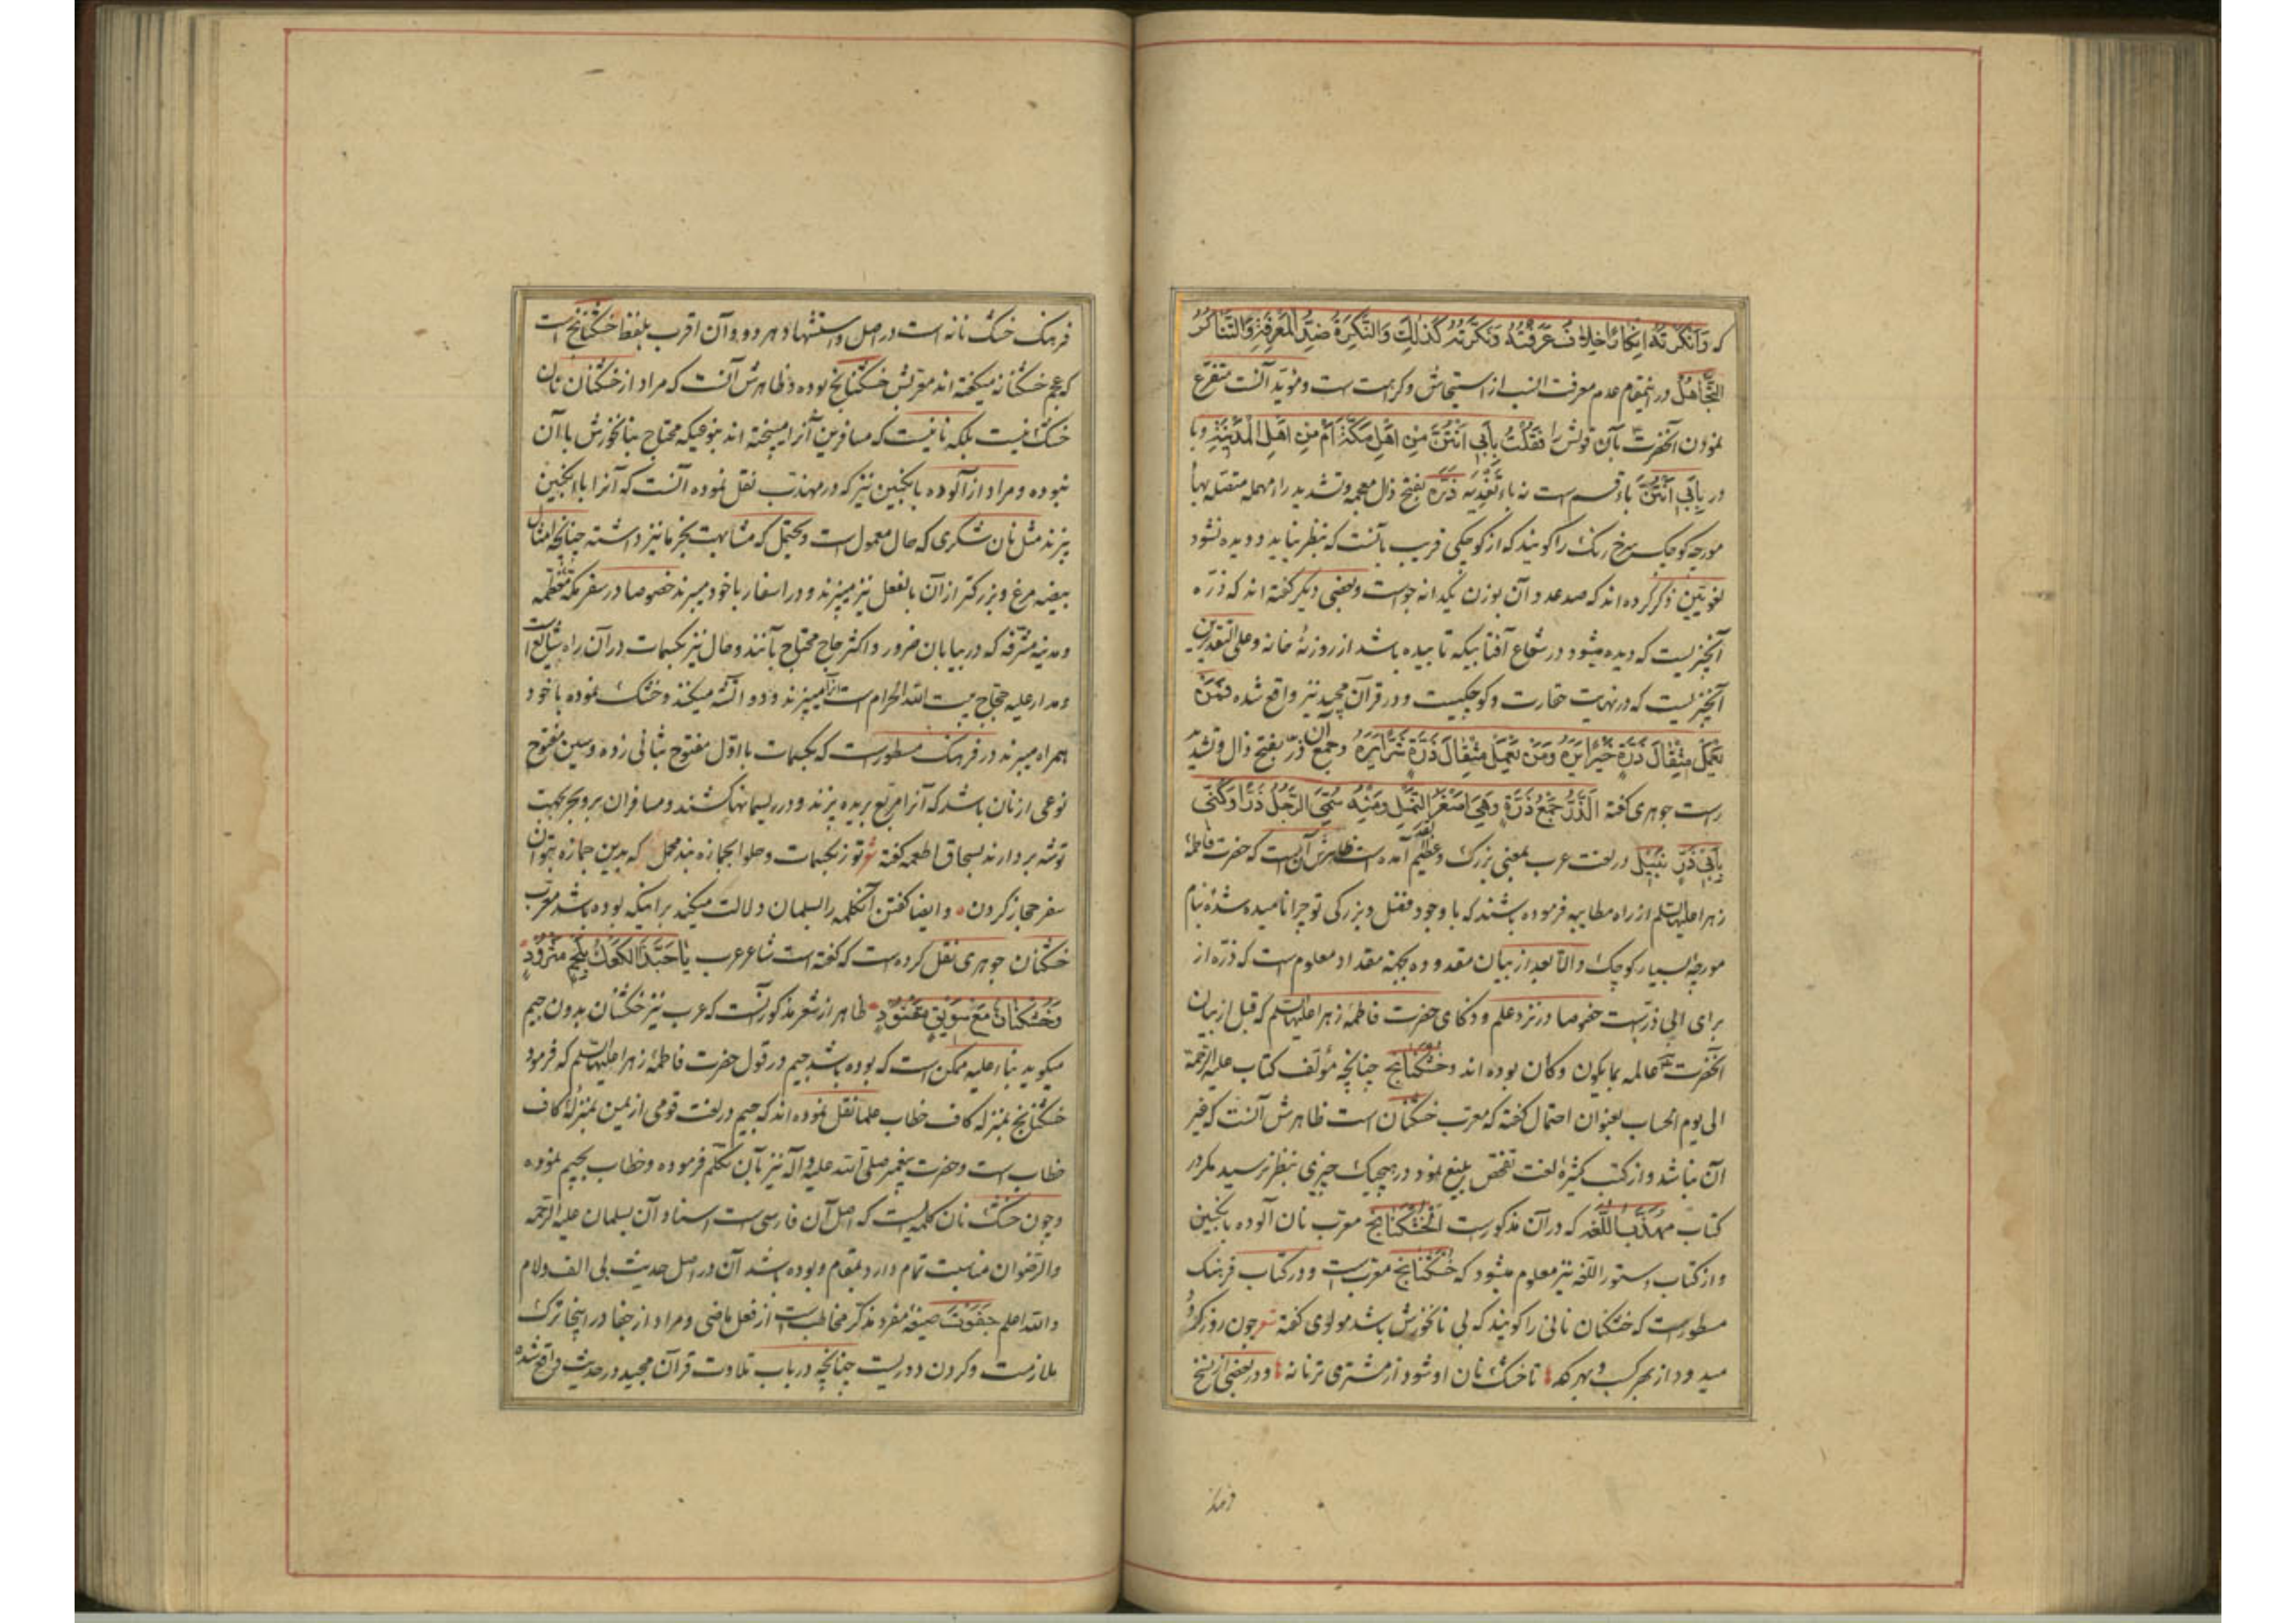 که وَاَنْکَرْتُهُ اِنْکارًا خِلافُ عَرَفْتُهُ وَنَکَّرْتُهُ کَذٰلِكَ وَالنَّکِرَةُ ضِدُّ الْمَعْرِفَةِ وَالتَّناکُرُ
التَّجاهُلُ در اینمقام عدم معرفت انسب از استیحاش وکراهت است ومؤید آنست متفرع
نمودن آنحضرت بآن قولش را فَقُلْتُ بِاَبی اَنْتُنَّ مِنْ اَهْلِ مَکَّةَ اَمْ مِنْ اَهْلِ الْمَدینَةِ وبا
در بِاَبی اَنْتُنَّ باء قسم است نه باء تَعْدِیَه ذَرَّه بفتح ذال معجمه وتشدید راء مهمله متصله بها
مورچه کوچک سرخ رنک را کویند که از کوچکی قریب بآنست که بنظر نیاید و دیده نشود
لغویین ذکر کرده اند که صد عدد آن بوزن یکدانه جو است وبعضی دیکر کفته اند که ذرّه
آنچیزیست که دیده میشود در شعاع آفتابیکه تابیده باشد از روزنهٔ خانه وعلی التقدیرین
آنچیزیست که در نهایت حقارت وکوچکیست و در قرآن مجید نیز واقع شده فَمَنْ
یَعْمَلْ مِثْقالَ ذَرَّةٍ خَیْرًا یَرَهُ وَمَنْ یَعْمَلْ مِثْقالَ ذَرَّةٍ شَرًّا یَرَهُ وجمع آن ذرّ بفتح ذال وتشدید
راست جوهری کفته اَلذَّرُّ جَمْعُ ذَرَّةٍ وَهِیَ اَصْغَرُ النَّمْلِ وَمِنْهُ سُمِّیَ الرَّجُلُ ذَرًّا وَکُنِّیَ
بِاَبی ذَرٍّ نَبیل در لغت عرب بمعنی بزرک وعظیم القدر آمده است ظاهرش آن است که حضرت فاطمهٔ
زهرا علیها السلم از راه مطایبه فرموده باشند که با وجود فضل وبزرکی تو چرا نامیده شدهٔ بنام
مورچهٔ بسیار کوچک والا بعد از بیان مقدوده بچه مقداد معلوم است که ذرّه از
برای ابی ذر است خصوصا در نزد علم وذکای حضرت فاطمهٔ زهرا علیها السلم که قبل از بیان
آنحضرت عالمه بما یکون وکان بوده اند وخُشْکَنانَج چنانچه مؤلف کتاب علیه الرحمة
الی یوم الحساب بعنوان احتمال کفته که معرب خشکنان است ظاهرش آنست که غیر
آن نباشد واز کتب کثیرهٔ لغت تفحص بلیغ نمود در هیچیک چیزی بنظر نرسید مکر در
کتاب مُهَذَّبُ اللُّغَه که در آن مذکورست اَلْخُشْکَنانَج معرب نان آلوده بانکبین
و از کتاب دستور اللغه نیز معلوم میشود که خُشْکَنانَج معرب است و در کتاب فرهنک
مسطورست که خشکنان نانی را کویند که بی نانخورش باشد مولوی کفته شعر چون روز کرد
میدود از بهر کسب وبهر کد تا خشک نان او شود از مشتری ترنانه و در بعضی از نسخ
فرهنک
فرهنک خشک نانه است در اصل واستشهاد هر دو وآن اقرب بلفظ خشکنانج است
که عجم خشکنانه میکفته اند معربش خشکنانج بوده وظاهرش آنست که مراد از خشکنان نان
خشک نیست بلکه نانیست که مسافرین آنرا میپخته اند بنوعیکه محتاج بنانخورش با آن
نبوده ومراد از آلوده بانکبین نیز که در مهذب نقل نموده آنست که آنرا با انکبین
پزند مثل نان شکری که حال معمول است ویحتمل که مشابهت بخرما نیز داشته چنانچه امثال
بیضه مرغ وبزرکتر از آن بالفعل نیز میپزند و در اسفار با خود میبرند خصوصا در سفر مکّهٔ معظّمه
ومدینه مشرّفه که در بیابان ضرور واکثر حاج محتاج بآنند وحال نیز بکسمات در آن راه شایع است
ومدار علیه حجّاج بیت الله الحرام است از آرد میپزند و دو آتشه میکنند وخشک نموده با خود
همراه میبرند در فرهنک مسطورست که بکسمات با اوّل مفتوح بثانی زده وسین مفتوح
نوعی از نان باشد که آنرا مربع بریده پزند و در ریسمانها کشند ومسافران بر وبحر بجهت
توشه بردارند بسحاق اطعمه کفته شعر توز بکسمات وحلوا بجمازه بند محمل که بدین جمازه بتوان
سفر حجاز کردن وایضا کفتن آنکلمه را بسلمان دلالت میکند بر اینکه بوده باشد معرب
خشکنان جوهری نقل کرده است که کفته است شاعر عرب یا حَبَّذَا الْکَعْكُ بِلَحْمٍ مَثْرُودٍ
وَخُشْکَنانٌ مَعَ سَویقٍ مَقْنُودٍ ظاهر از شعر مذکور آنست که عرب نیز خشکنان بدون جیم
میکوید بناء علیه ممکن است که بوده باشد جیم در قول حضرت فاطمهٔ زهرا علیها السلم که فرمود
خشکنانج بمنزله کاف خطاب علما نقل نموده اند که جیم در لغت قومی از یمن بمنزلهٔ کاف
خطاب است وحضرت پیغمبر صلی الله علیه وآله نیز بآن تکلّم فرموده وخطاب بجیم نموده
وچون خشک نان کلمه ایست که اصل آن فارسی است اسناد آن بسلمان علیه الرحمه
والرضوان مناسبت تمام دارد بمقام وبوده باشد آن در اصل حدیث بی الف ولام
والله اعلم جَفَوْتَ صیغهٔ مفرد مذکر مخاطب است از فعل ماضی ومراد از جفا در اینجا ترک
ملازمت وکردن دوریست چنانچه در باب تلاوت قرآن مجید در حدیث واقع شده